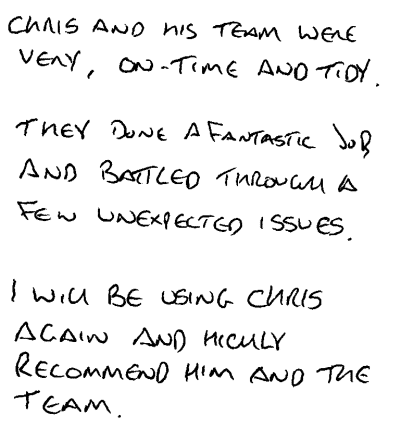 CHRIS AND HIS TEAM WERE
VERY, ON-TIME AND TIDY.
THEY DONE A FANTASTIC JOB
AND BATTLED THROUGH A
FEW UNEXPECTED ISSUES.
I WILL BE USING CHRIS
AGAIN AND HIGHLY
RECOMMEND HIM AND THE
TEAM.